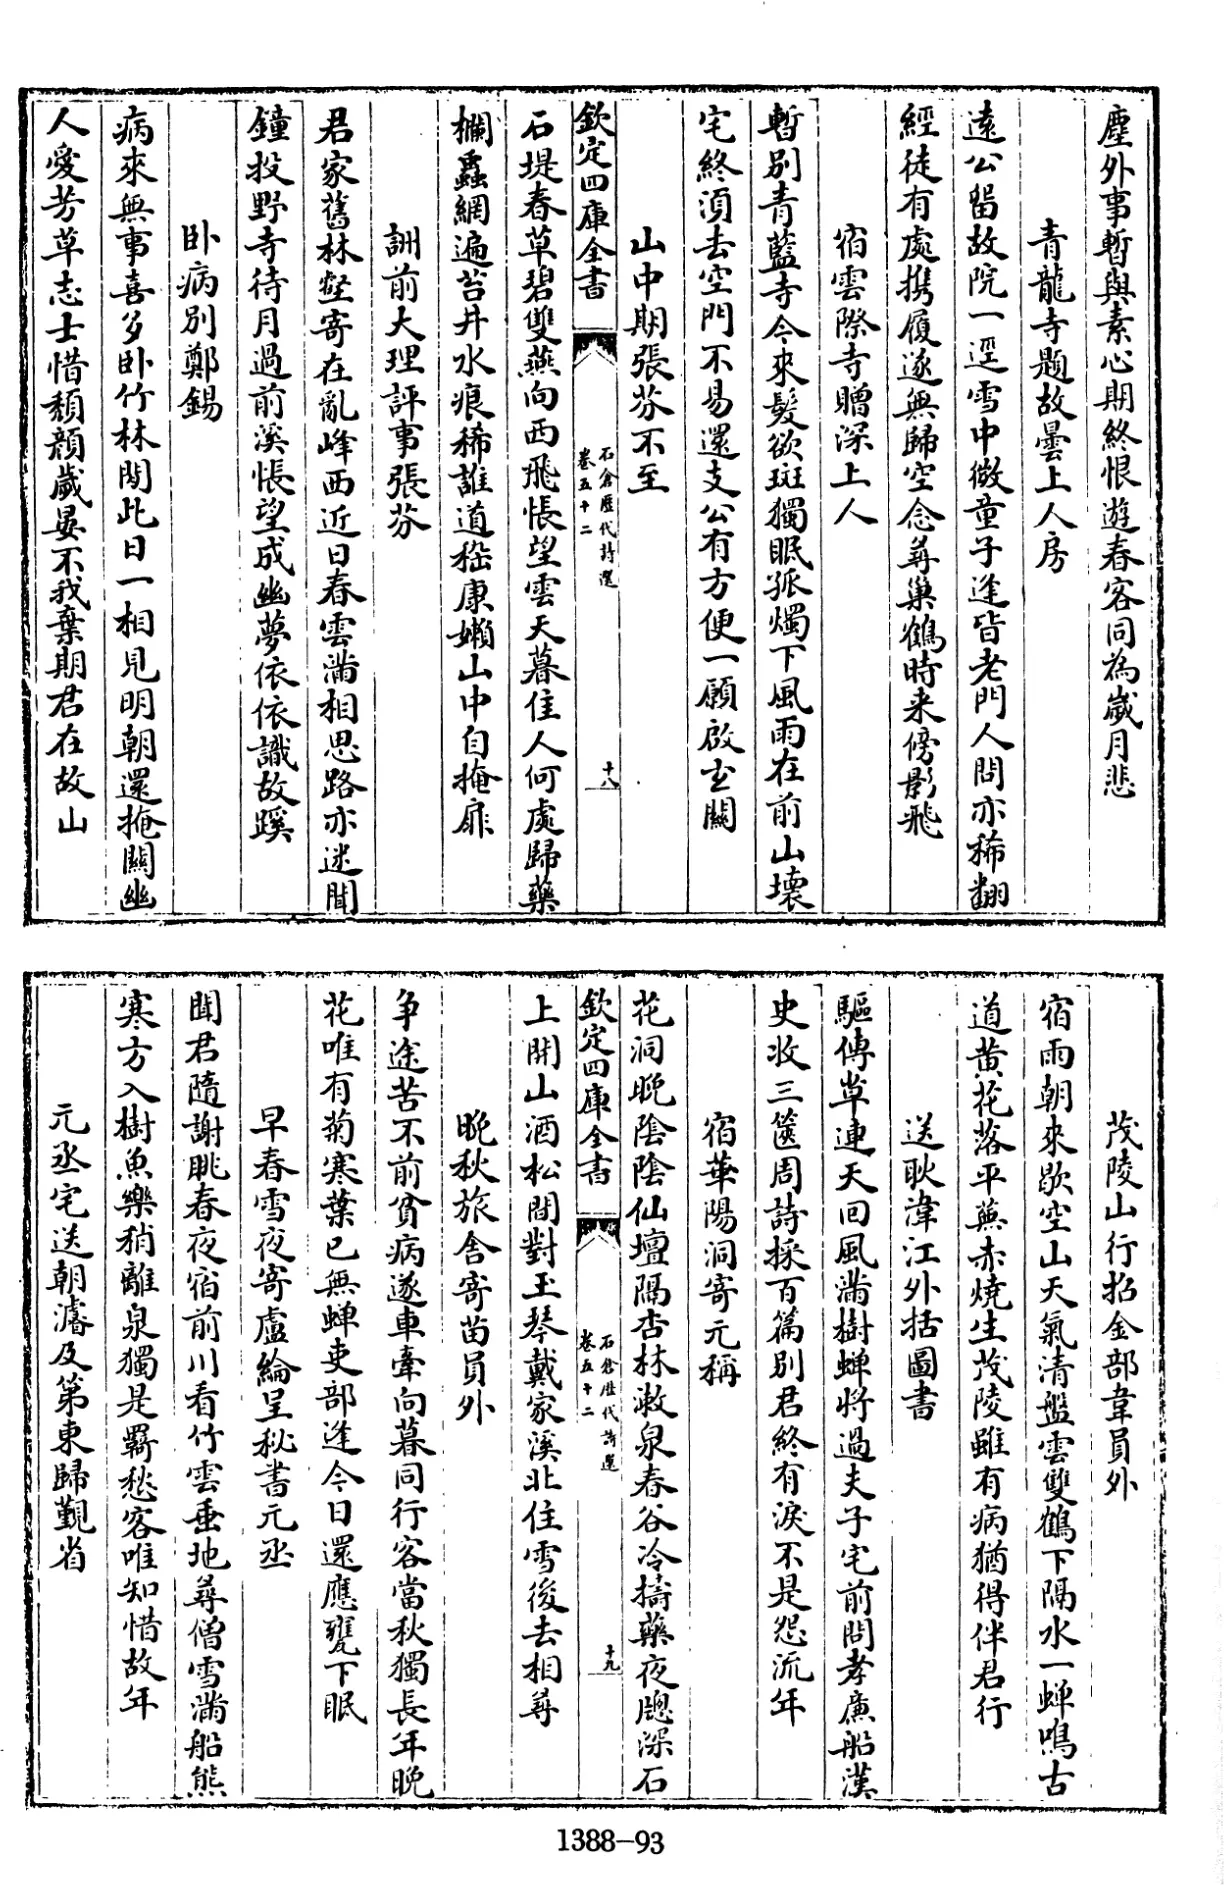 塵外事暫與素心期終恨遊春客同為歲月悲
青龍寺題故曇上人房
遠公留故院一逕雪中微童子逢皆老門人問亦稀翻
經徒有處携履遂無歸空念尋巢鶴時来傍影飛
宿雲際寺贈深上人
暫別青藍寺今來髮欲斑獨眠孤燭下風雨在前山壞
宅終須去空門不易還支公有方便一願啟玄關
山中期張芬不至
欽定四庫全書
石倉歷代詩選
卷五十二
十八
石堤春草碧雙燕向西飛悵望雲天暮佳人何處歸藥
欄蟲網遍苔井水痕稀誰道嵇康嬾山中自掩扉
訓前大理評事張芬
君家舊林壑寄在亂峰西近日春雲滿相思路亦迷聞
鐘投野寺待月過前溪悵望成幽夢依依識故蹊
卧病別鄭錫
病來無事喜多卧竹林閒此日一相見明朝還掩關幽
人愛芳草志士惜頹顏歲晏不我棄期君在故山
茂陵山行招金部韋員外
宿雨朝來歇空山天氣清盤雲雙鶴下隔水一蟬鳴古
道黄花落平蕪赤燒生茂陵雖有病猶得伴君行
送耿湋江外括圖書
驅傳草連天回風滿樹蟬將過夫子宅前問孝廉船漢
史收三篋周詩採百篇別君終有淚不是怨流年
宿華陽洞寄元稱
花洞晚陰陰仙壇隔杏林漱泉春谷冷擣藥夜牕深石
欽定四庫全書
石倉歷代詩選
卷五十二
十九
上開山酒松間對玉琴戴家溪北住雪後去相尋
晚秋旅舍寄苗員外
争途苦不前貧病遂車牽向暮同行客當秋獨長年晚
花唯有菊寒葉已無蟬吏部逢今日還應甕下眠
早春雪夜寄盧綸呈秘書元丞
聞君隨謝朓春夜宿前川看竹雲垂地尋僧雪滿船熊
寒方入樹魚樂稍離泉獨是羈愁客唯知惜故年
元丞宅送朝濬及第東歸覲省
1388-93